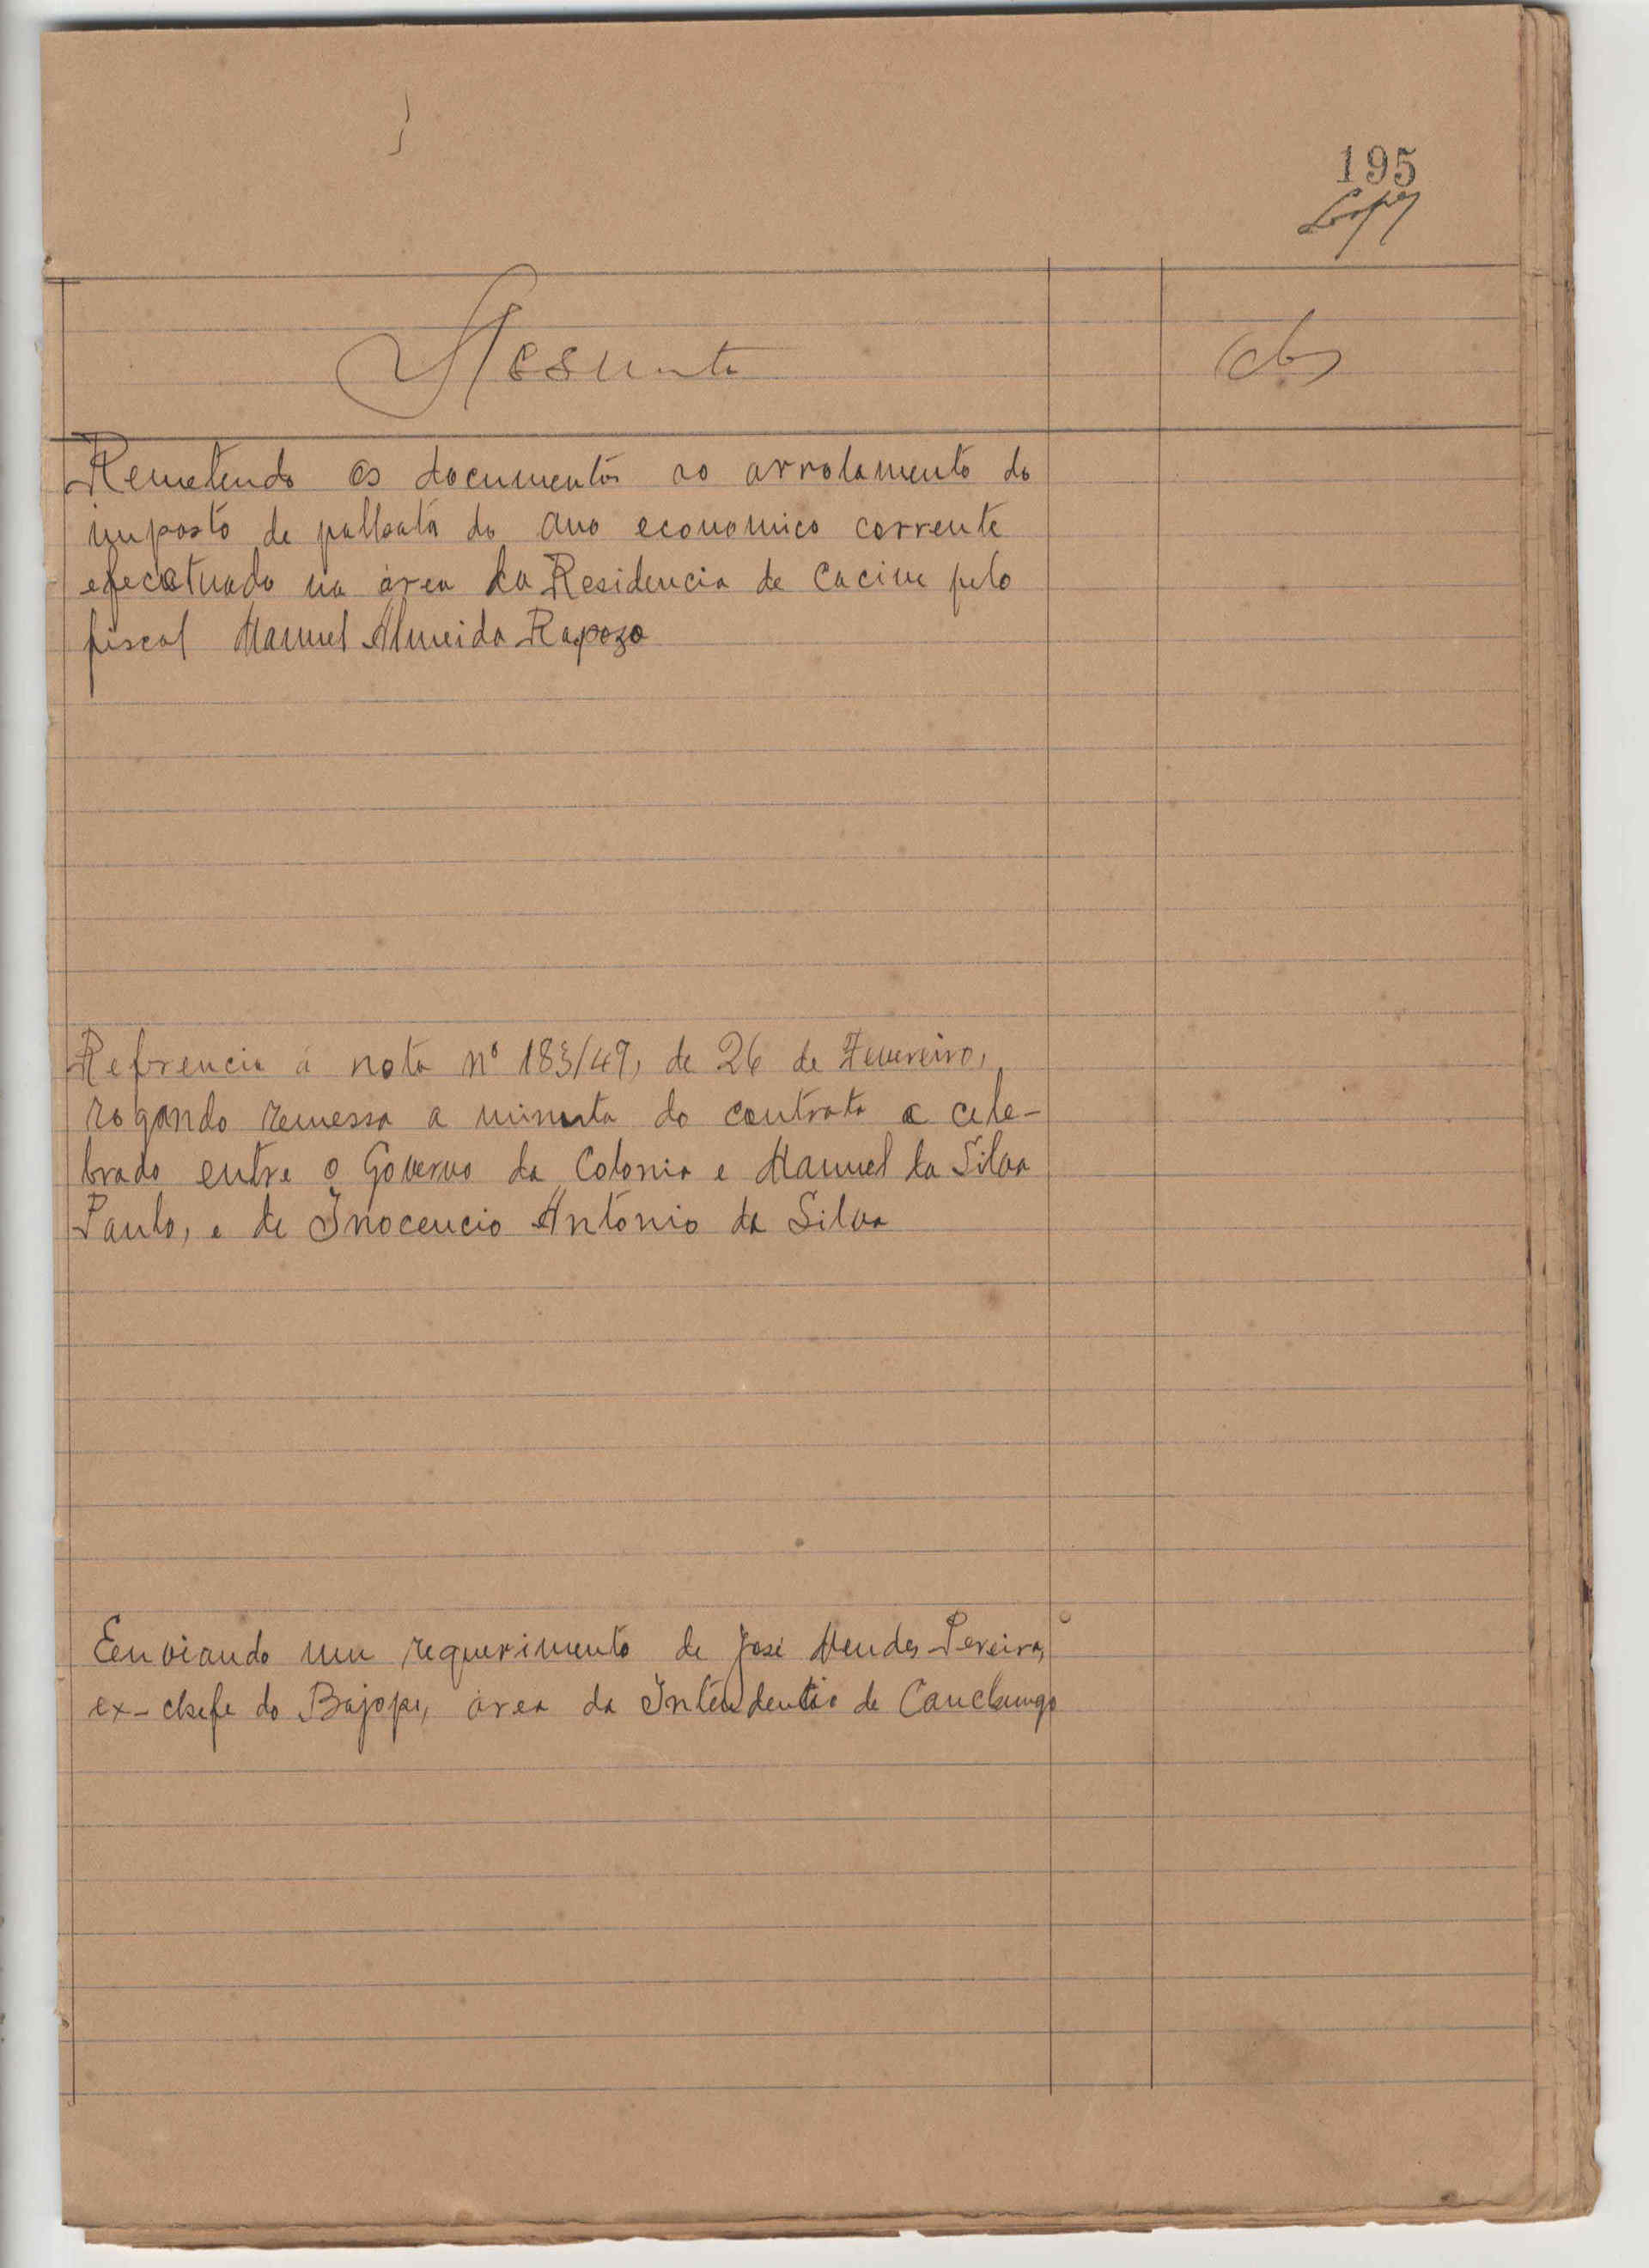 195
Lopes
Assunto
Obs
Remetendo os documentos ao arrolamento do
imposto de palhota do ano economico corrente
efecotuado na área da Residencia de Cacine pelo
fiscal Manuel Almeida Rapozo
Refrencia á nota nº 183/49, de 26 de Fevereiro,
rogando remessa a minuta do contrato a cele-
brado entre o Governo da Colonia e Manuel da Silva
Paulo, e de Inocencio António da Silva
Eenviando um requerimento de José Mendes Pereira,
ex-chefe do Bajope, area da Intendentia de Canchungo